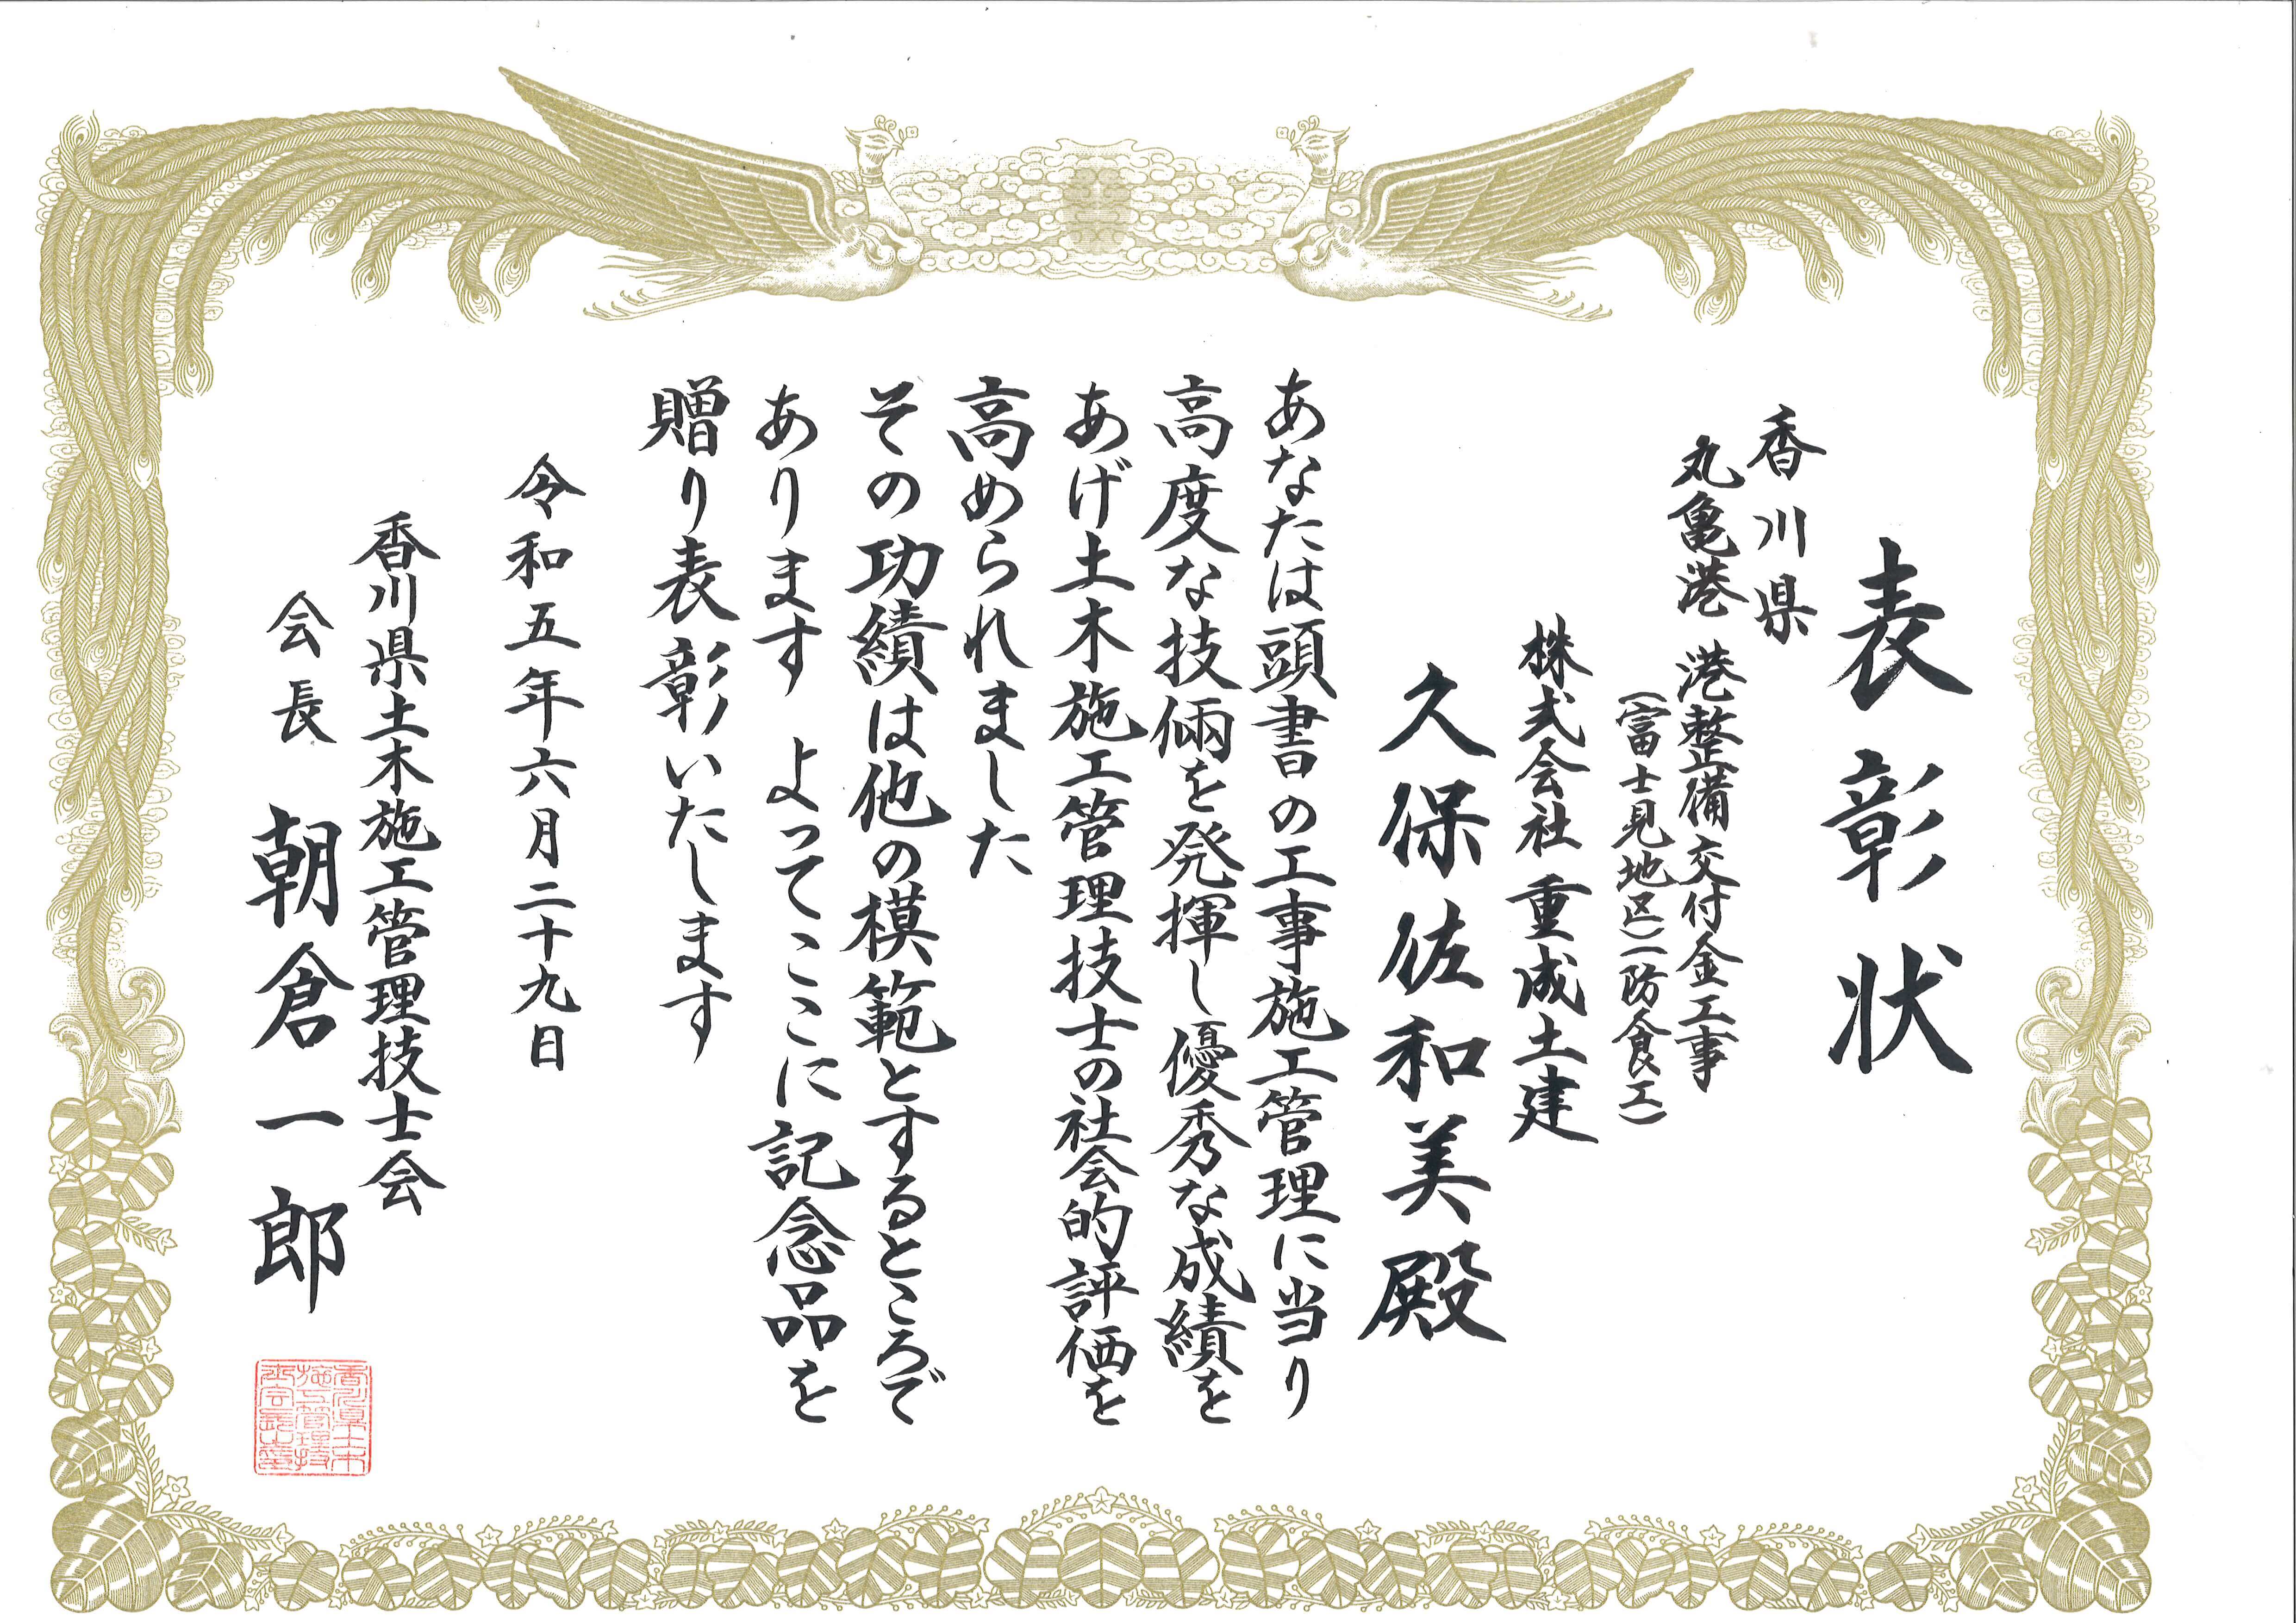 表彰状
香川県
丸亀港 港整備交付金工事
(富士見地区)(防食工)
株式会社 重成土建
久保佐和美殿
あなたは頭書の工事施工管理に当り
高度な技倆を発揮し優秀な成績を
あげ土木施工管理技士の社会的評価を
高められました
その功績は他の模範とするところで
あります よってここに記念品を
贈り表彰いたします
令和五年六月二十九日
香川県土木施工管理技士会
会長 朝倉一郎
香川県土木
施工管理技
士会長之印